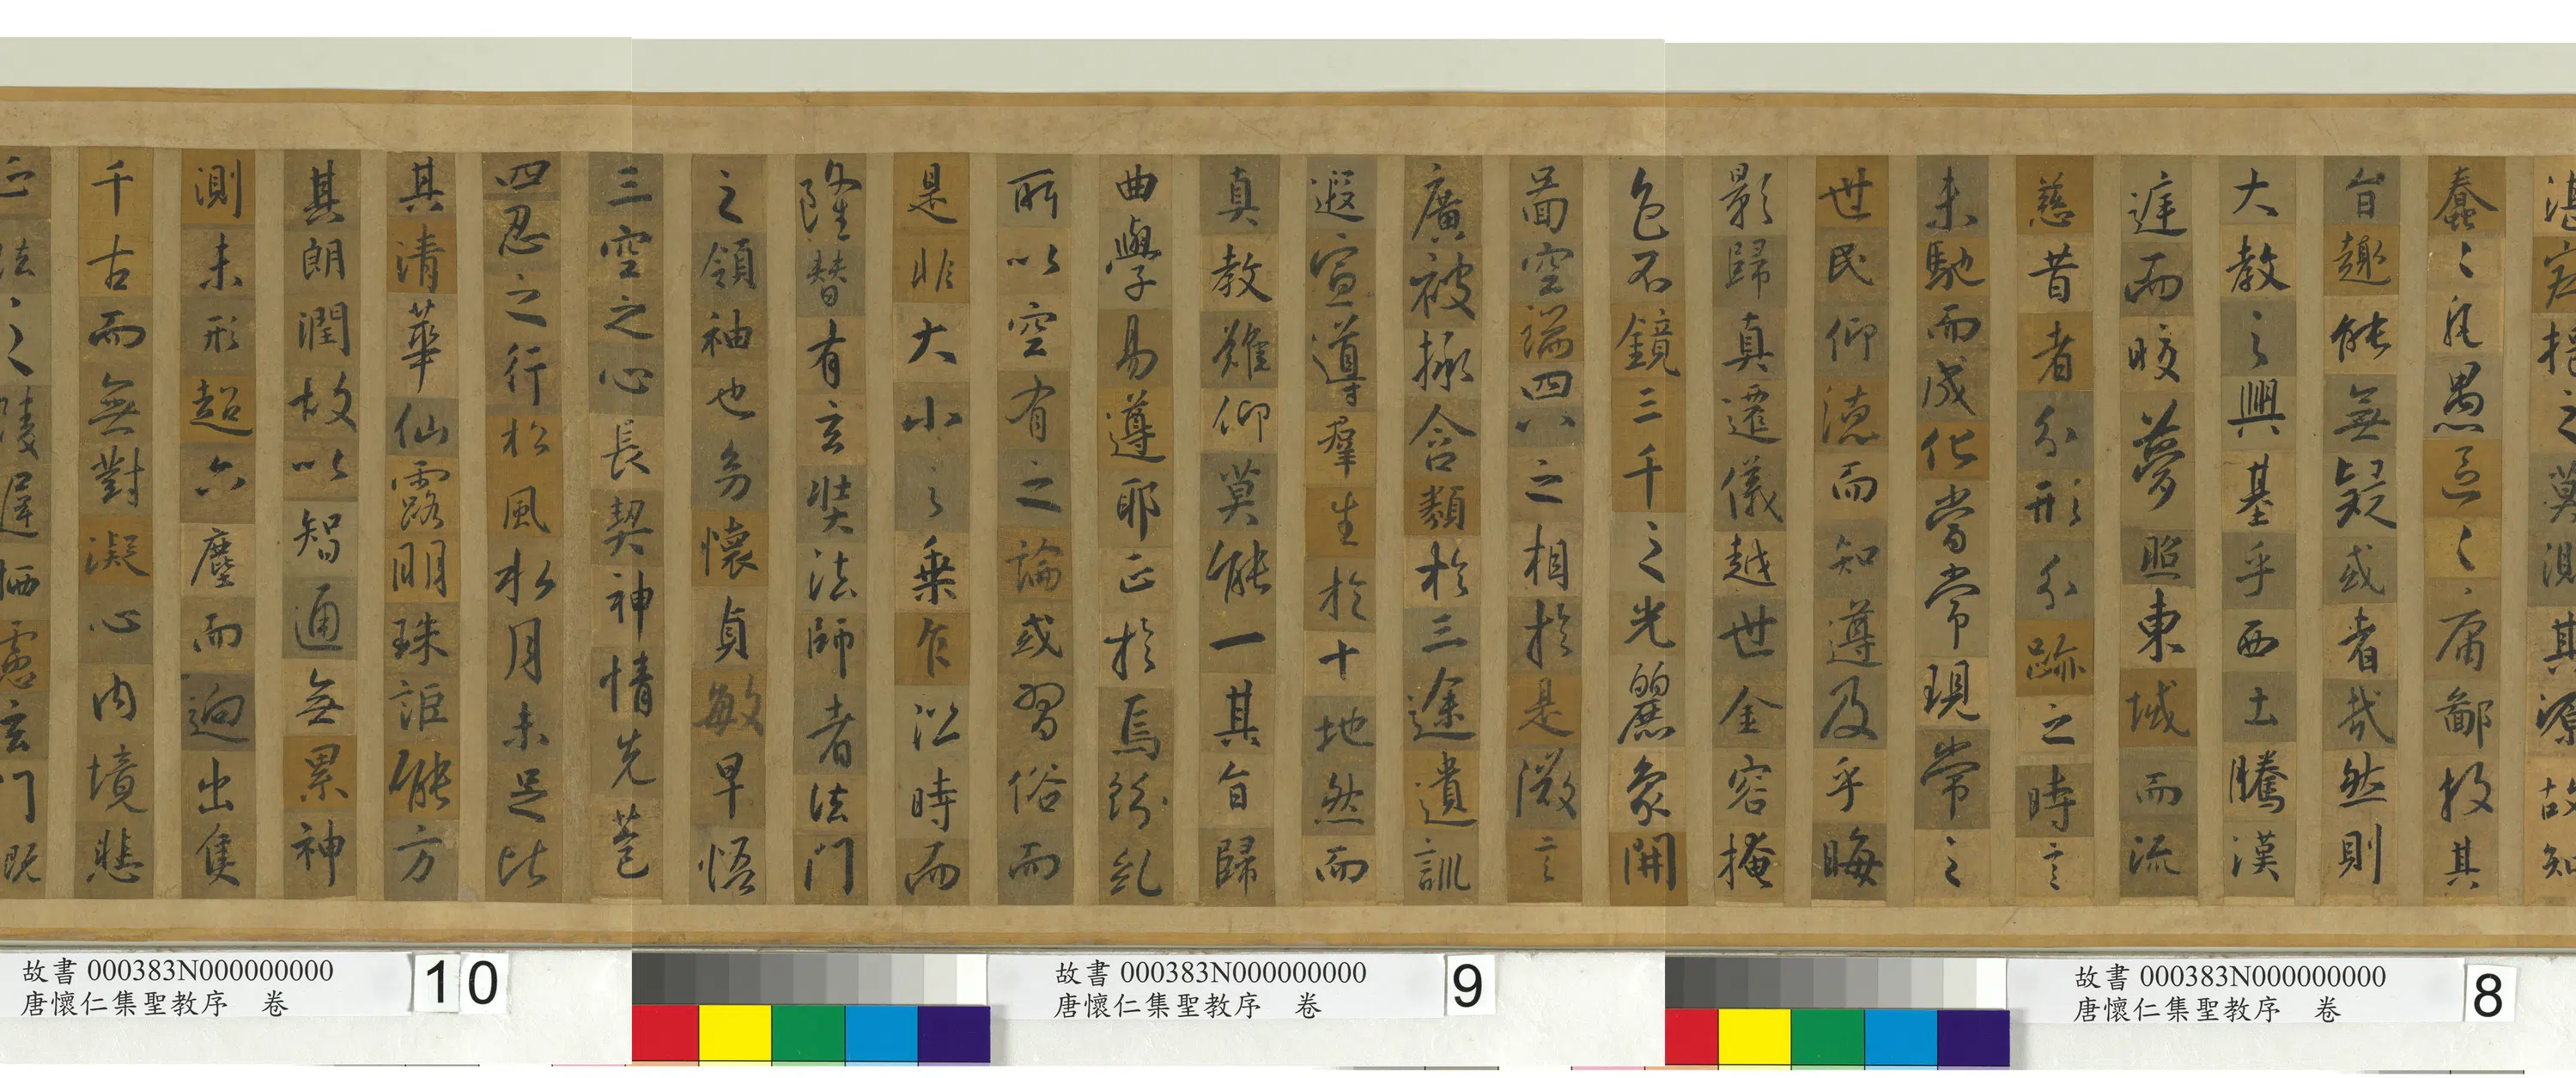 湛寂挹之莫測其源故知
蠢〻凡愚區〻庸鄙投其
旨趣能無疑或者哉然則
大教之興基乎西土騰漢
庭而皎夢照東域而流
慈昔者分形分跡之時言
未馳而成化當常現常之
世民仰德而知遵及乎晦
影歸真遷儀越世金容掩
色不鏡三千之光麗象開
圖空端四八之相於是微言
廣被拯含類於三途遺訓
遐宣導群生於十地然而
真教難仰莫能一其旨歸
曲學易遵耶正於焉紛糺
所以空有之論或習俗而
是非大小之乘乍沿時而
隆替有玄奘法師者法門
之領袖也幼懷貞敏早悟
三空之心長契神情先苞
四忍之行松風水月未足比
其清華仙露明珠詎能方
其朗潤故以智通無累神
測未形超六塵而迥出隻
千古而無對凝心內境悲
正法之陵遲栖慮玄門慨
故書 000383N000000000
唐懷仁集聖教序 卷
8
故書 000383N000000000
唐懷仁集聖教序 卷
9
故書 000383N000000000
唐懷仁集聖教序 卷
10